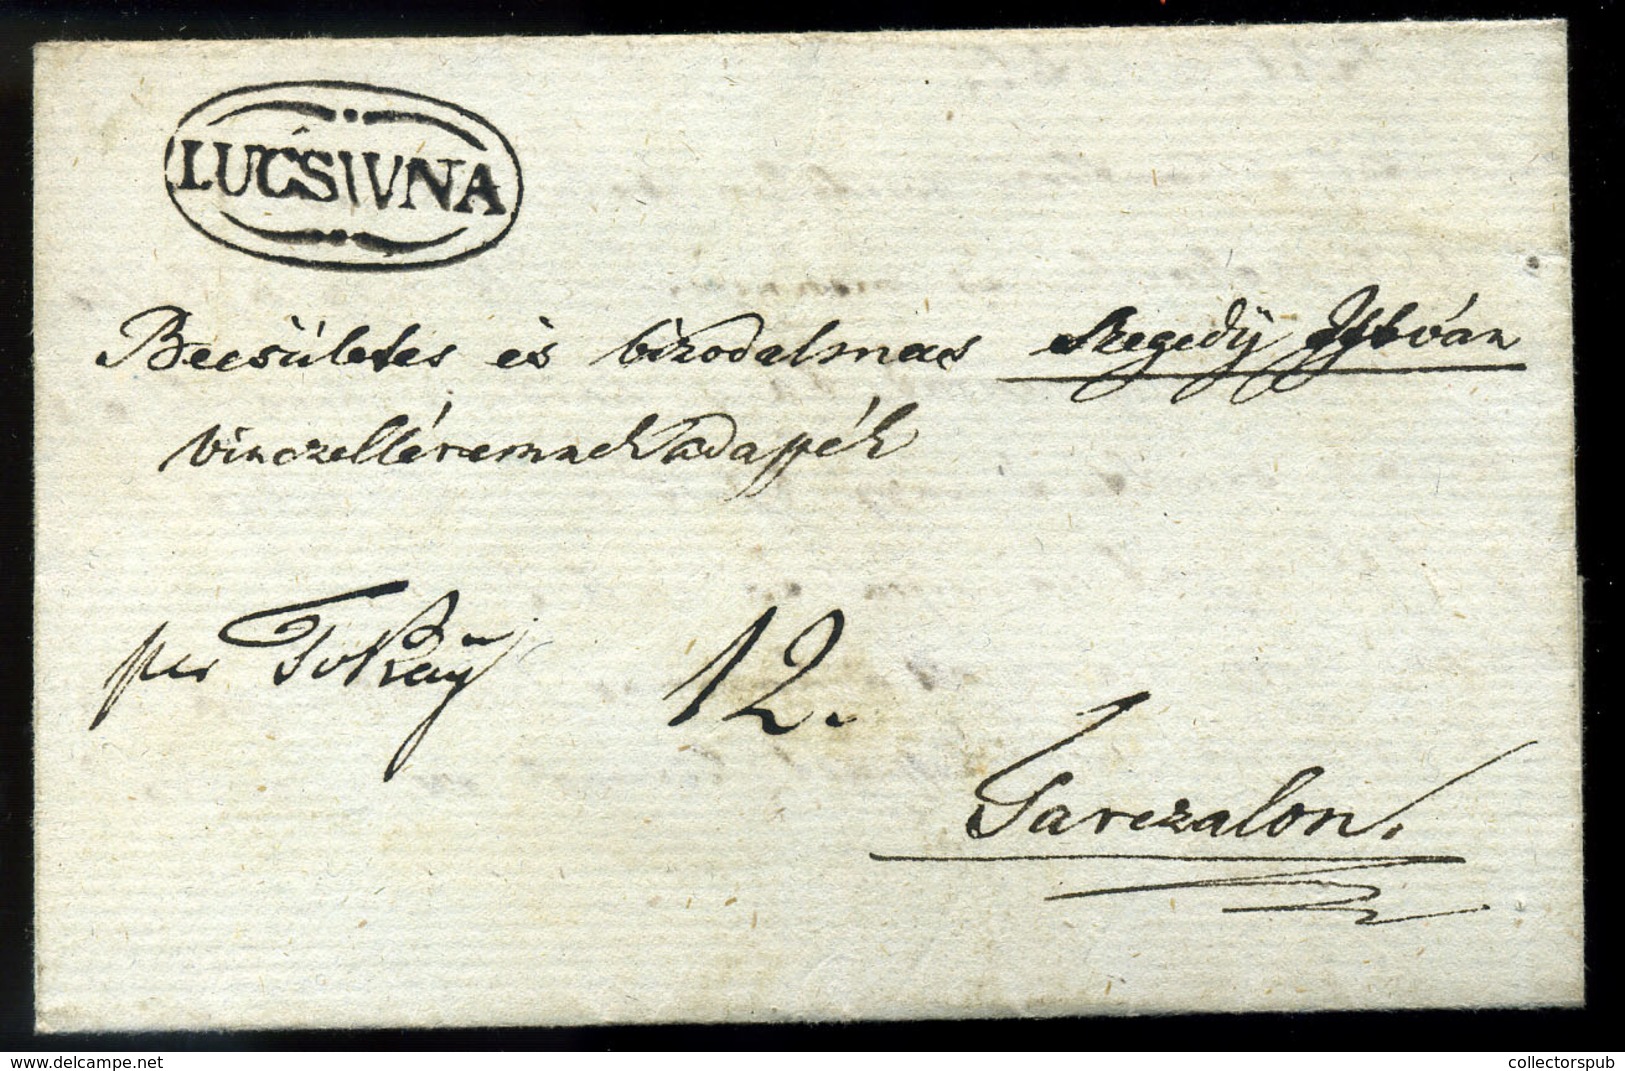 LUĆSIVNA
Becsületes és bizodalmas Szegedÿ Jstván
vinczelléremnek adassék
per Tokaÿ 12.
Tarczalon.
www.delcampe.net
collectorspub